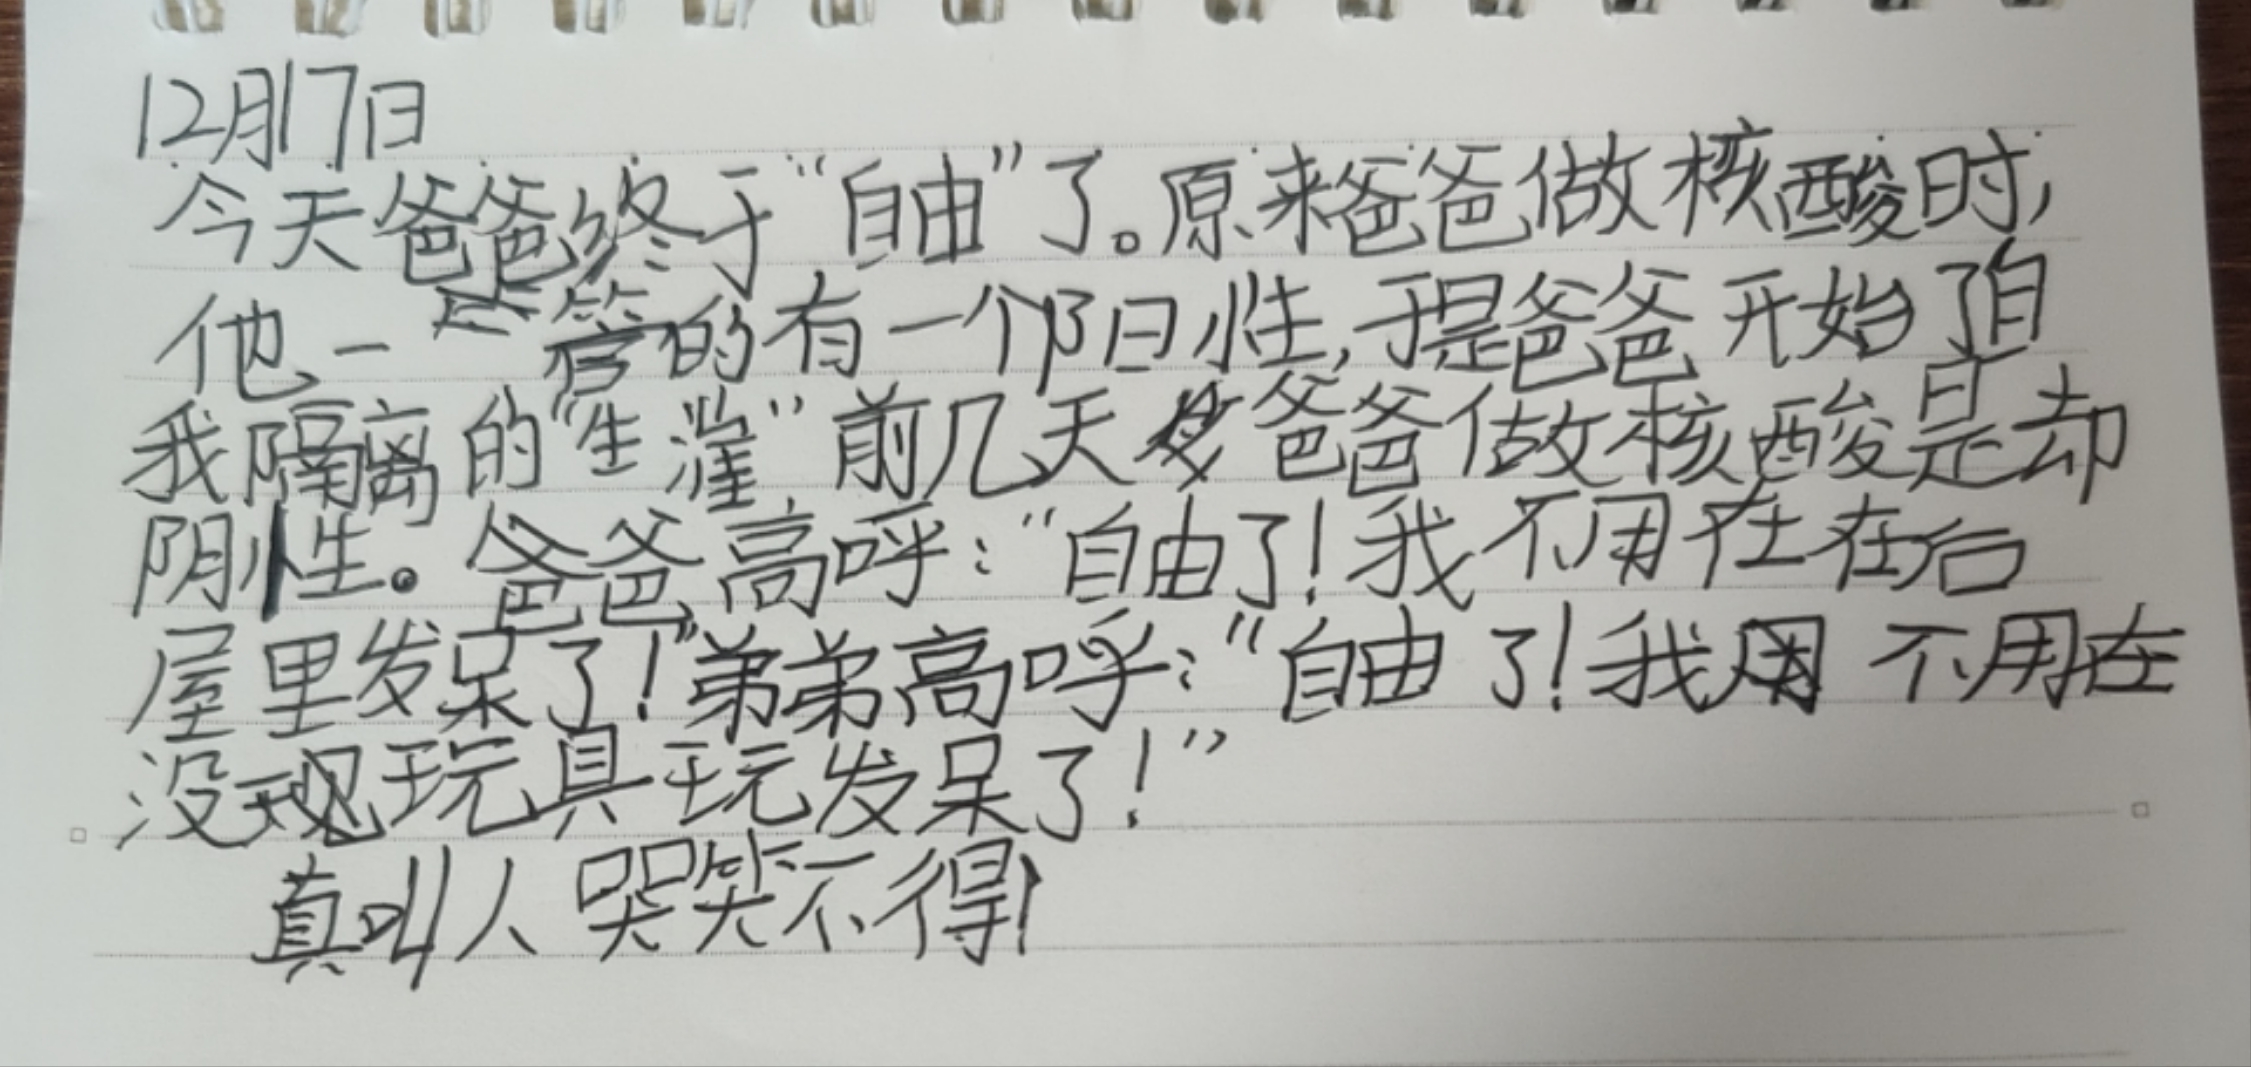 12月17日
今天爸爸终于“自由”了。原来爸爸做核酸时,
他一管的有一个阳性,于是爸爸开始了自
我隔离的“生涯”前几天爸爸做核酸是却
阴性。爸爸高呼:“自由了!我不用在在后
屋里发呆了!”弟弟高呼:“自由了!我不用在
没玩具玩发呆了!”
真叫人哭笑不得!